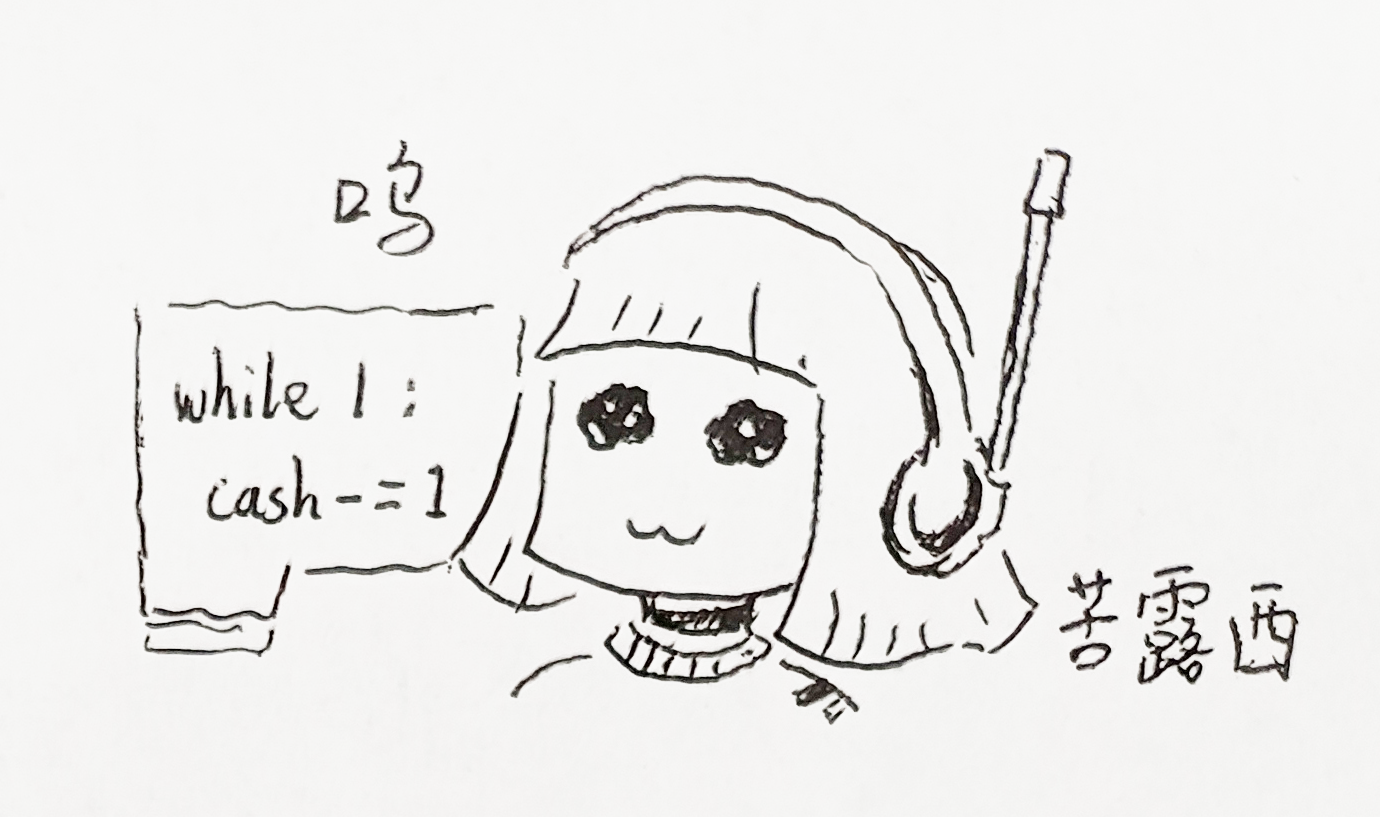 呜
while 1:
cash-=1
苦露西